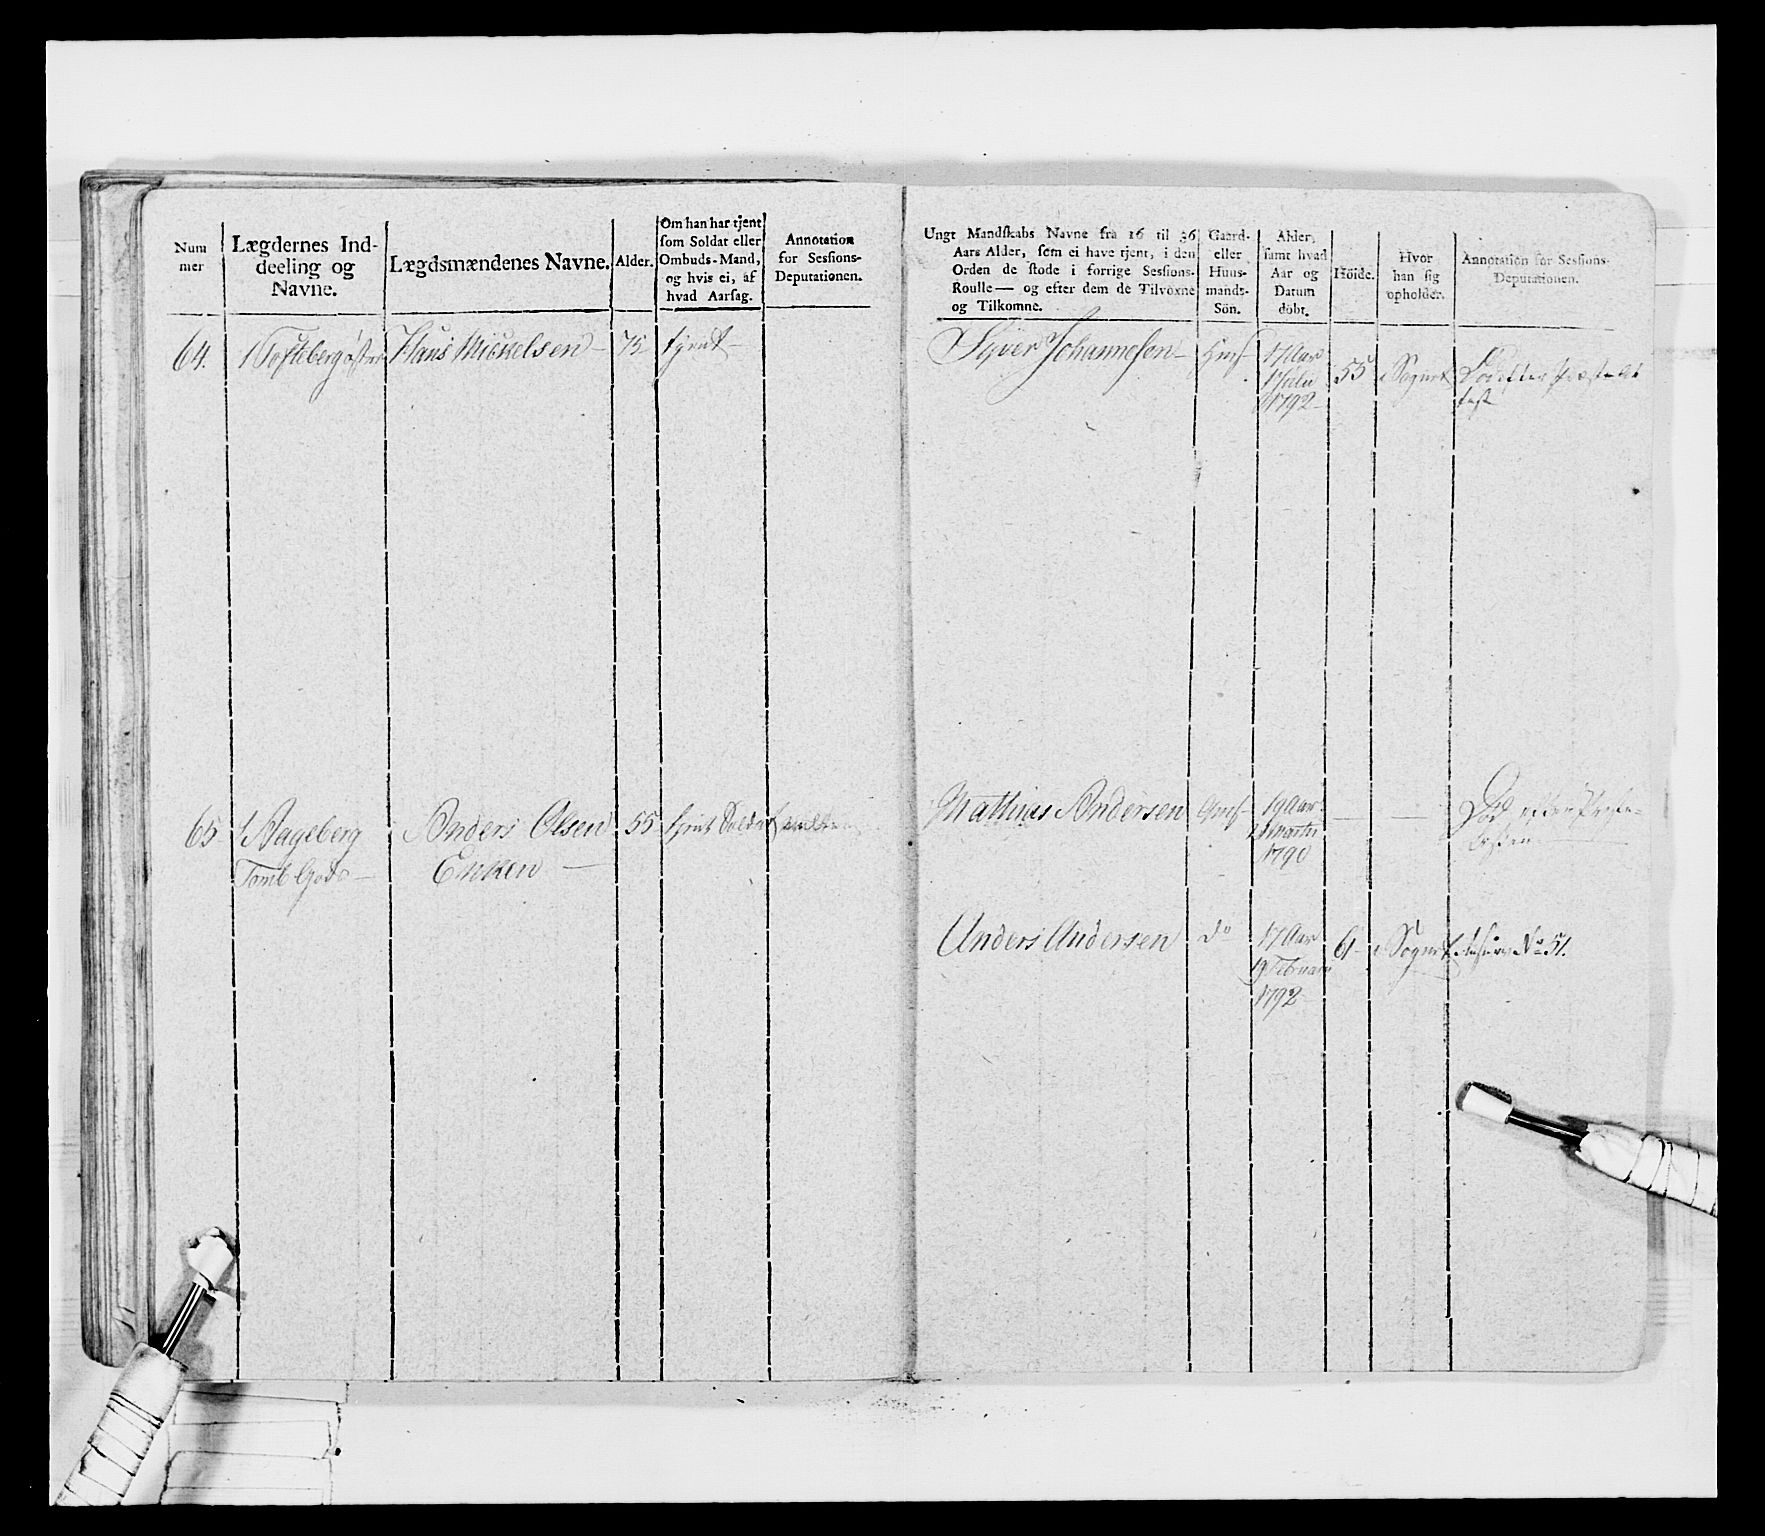 Nummer
Lægdernes Inddeeling og Navne.
Lægdsmændenes Navne.
Alder.
Om han har tjent
som Soldat eller
Ombuds-Mand,
og hvis ei, af
hvad Aarsag.
Annotation
for Sessions-
Deputationen.
64.
1 Toftebergøster
Hans Mickelsen —
75
tjent —
65
1 Aageberg
Anders Olsen
55
tjent Soldat
Tomb Gods —
Enken —
Ungt Mandskabs Navne fra 16 til 36
Aars Alder, som ei have tjent, i den
Orden de stode i forrige Sessions-
Roulle — og efter dem de Tilvoxne
og Tilkomne.
Gaard-
eller
Huus-
mands-
Sön.
Alder,
samt hvad
Aar og
Datum
döbt.
Höide.
Hvor
han sig
opholder.
Annotation for Sessions-
Deputationen.
Syver Johannesen —
17 Aar
55
i Sognet
1792 —
Mathias Andersen
19 Aar
— —
Död efter
1790
Anders Andersen
do
17 Aar
61 —
i Sognet
No 51.
19 Februarii
1792